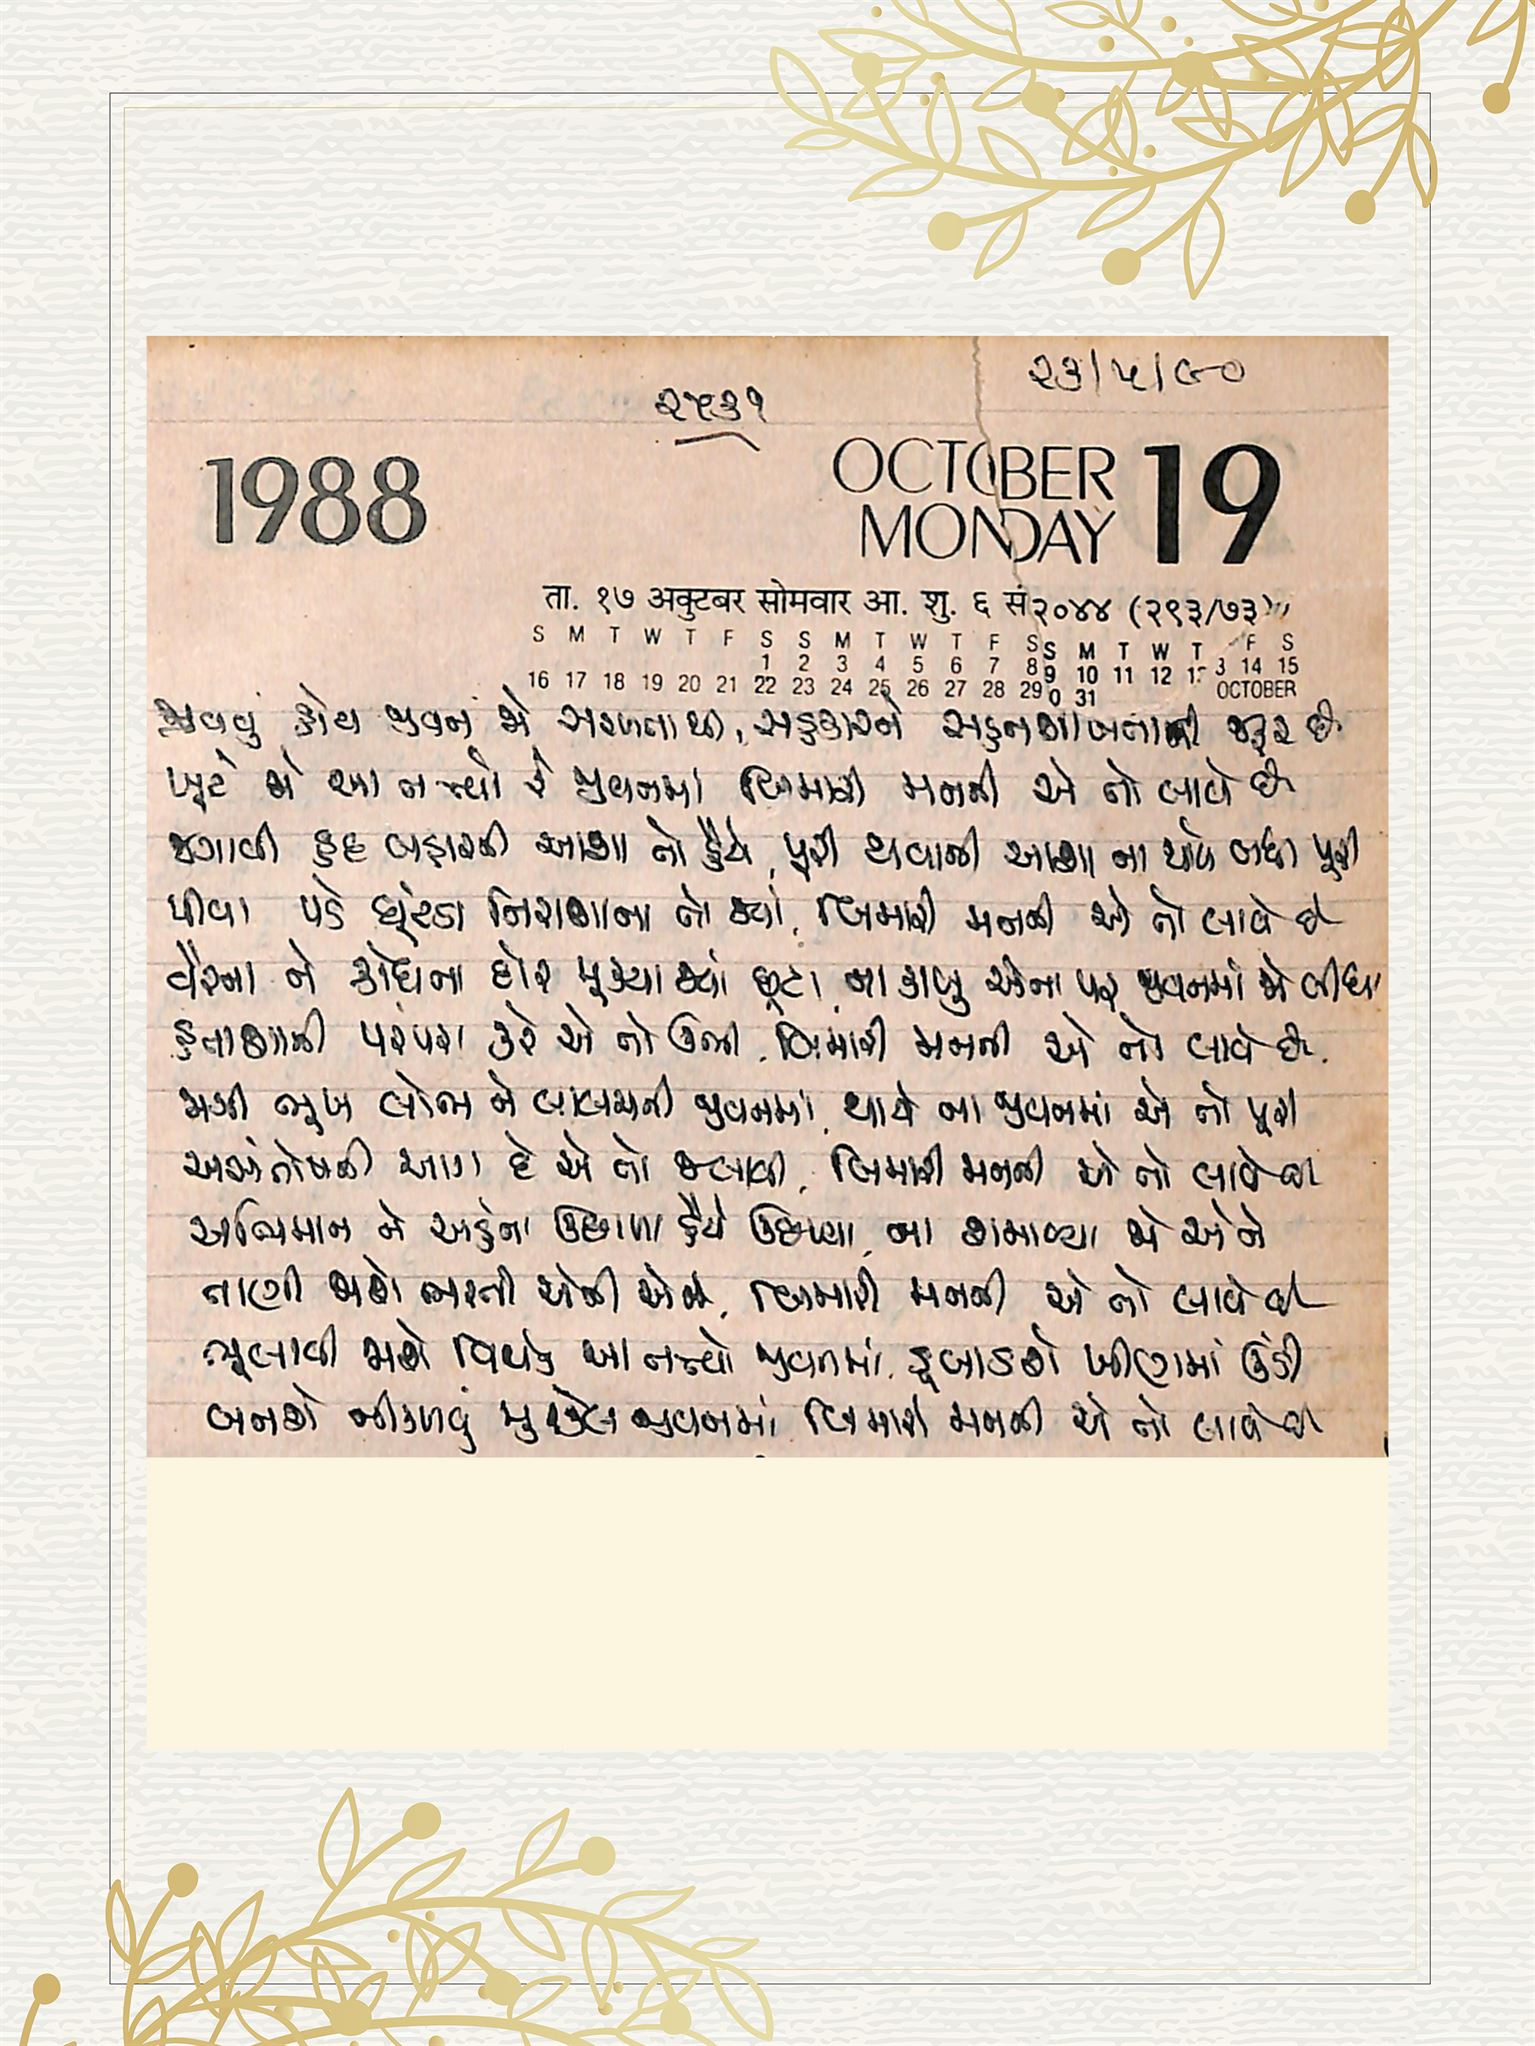 ૨૩/૫/૯૦
૨૫૩૧
1988
OCTOBER
MONDAY
19
ता. १७ अक्टुबर सोमवार आ. शु. ६ सं २०४४ (२९३/७३)
S M T W T F S S M T W T F S S M T W T F S
1 2 3 4 5 6 7 8 9 10 11 12 13 14 15
16 17 18 19 20 21 22 23 24 25 26 27 28 29 30 31 OCTOBER
જીવવું હોય જીવન જો સરળતાથી, સહકારને સહનશીલતાની જરૂર છે
ખૂટે જો આ બન્નો રે જીવનમાં બિમારી મનની એ તો લાવે છે
જગાવી હદ બહારની આશા તો હૈયે, પૂરી થવાની આશા ના થાયે બધી પૂરી
પીવા પડે ઘૂંટડા નિરાશાના તો જ્યાં, બિમારી મનની એ તો લાવે છે
વૈરના ને ક્રોધના દોર મૂક્યા જ્યાં છૂટા, ના કાબુ એના પર જીવનમાં જો લીધા
હતાશાની પરંપરા કરે એ તો ઊભી, બિમારી મનની એ તો લાવે છે.
જાગી ભૂખ લોભ ને લાલચની જીવનમાં, થાયે ના જીવનમાં એ તો પૂરી
અસંતોષની આગ દે એ તો જલાવી, બિમારી મનની એ તો લાવે છે
અભિમાન ને અહંના ઉછાળા હૈયે ઉછળ્યા, ના શમાવ્યા જો એને
તાણી જાશે ભરતી એની એમાં, બિમારી મનની એ તો લાવે છે
ભૂલાવી જાશે વિવેક આ બન્નો જીવનમાં, ડૂબાડશે ખીણમાં ઊંડી
બનશે નીકળવું મુશ્કેલ જીવનમાં, બિમારી મનની એ તો લાવે છે